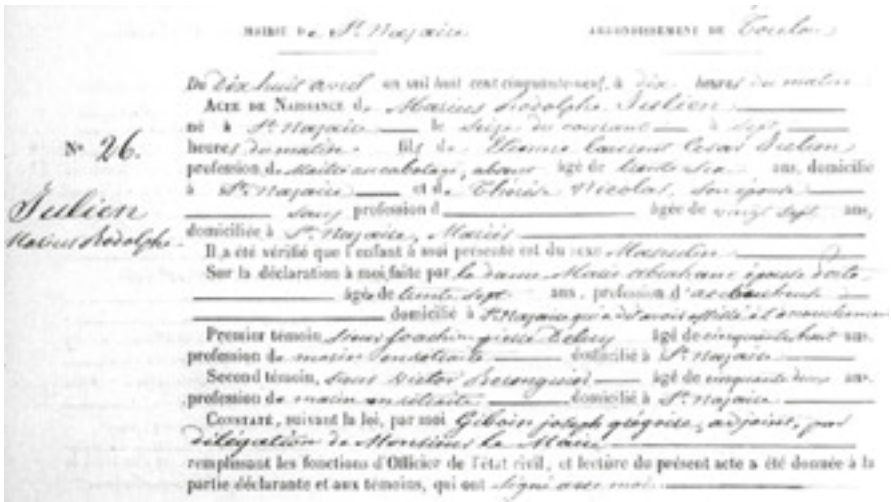 MAIRIE De St. Nazaire ARRONDISSEMENT DE Toulon
Du Dix huit avril en mil huit cent cinquante-neuf, à dix heures du matin
ACTE DE NAISSANCE de Marius Rodolphe Julien
né à St. Nazaire le Seize du courant à sept
N° 26.
heures du matin fils de Etienne Laurent Cesar Julien
profession de Maitre au cabotage, absent âgé de trente six ans, domicilié
à St. Nazaire et de Thérèse Nicolas, son épouse
Julien
Marius Rodolphe
sans profession d âgée de vingt sept ans,
domiciliée à St. Nazaire, Mariés
Il a été vérifié que l'enfant à moi présenté est du sexe Masculin
Sur la déclaration à moi faite par la dame Marie abraham épouse
âgée de trente sept ans, profession d'accoucheuse
domicilié à St. Nazaire qui a dit avoir assisté à l'accouchement
Premier témoin, sieur Joachim pierre âgé de cinquante huit ans.
profession de marin en retraite domicilié à St. Nazaire
Second témoin, sieur Victor Berenguier âgé de cinquante deux ans.
profession de marin en retraite domicilié à St. Nazaire
CONSTATÉ, suivant la loi, par moi Giboin joseph grégoire, adjoint, par
délégation de Monsieur le Maire
remplissant les fonctions d'Officier de l'état civil, et lecture du présent acte a été donnée à la
partie déclarante et aux témoins, qui ont signé avec moi